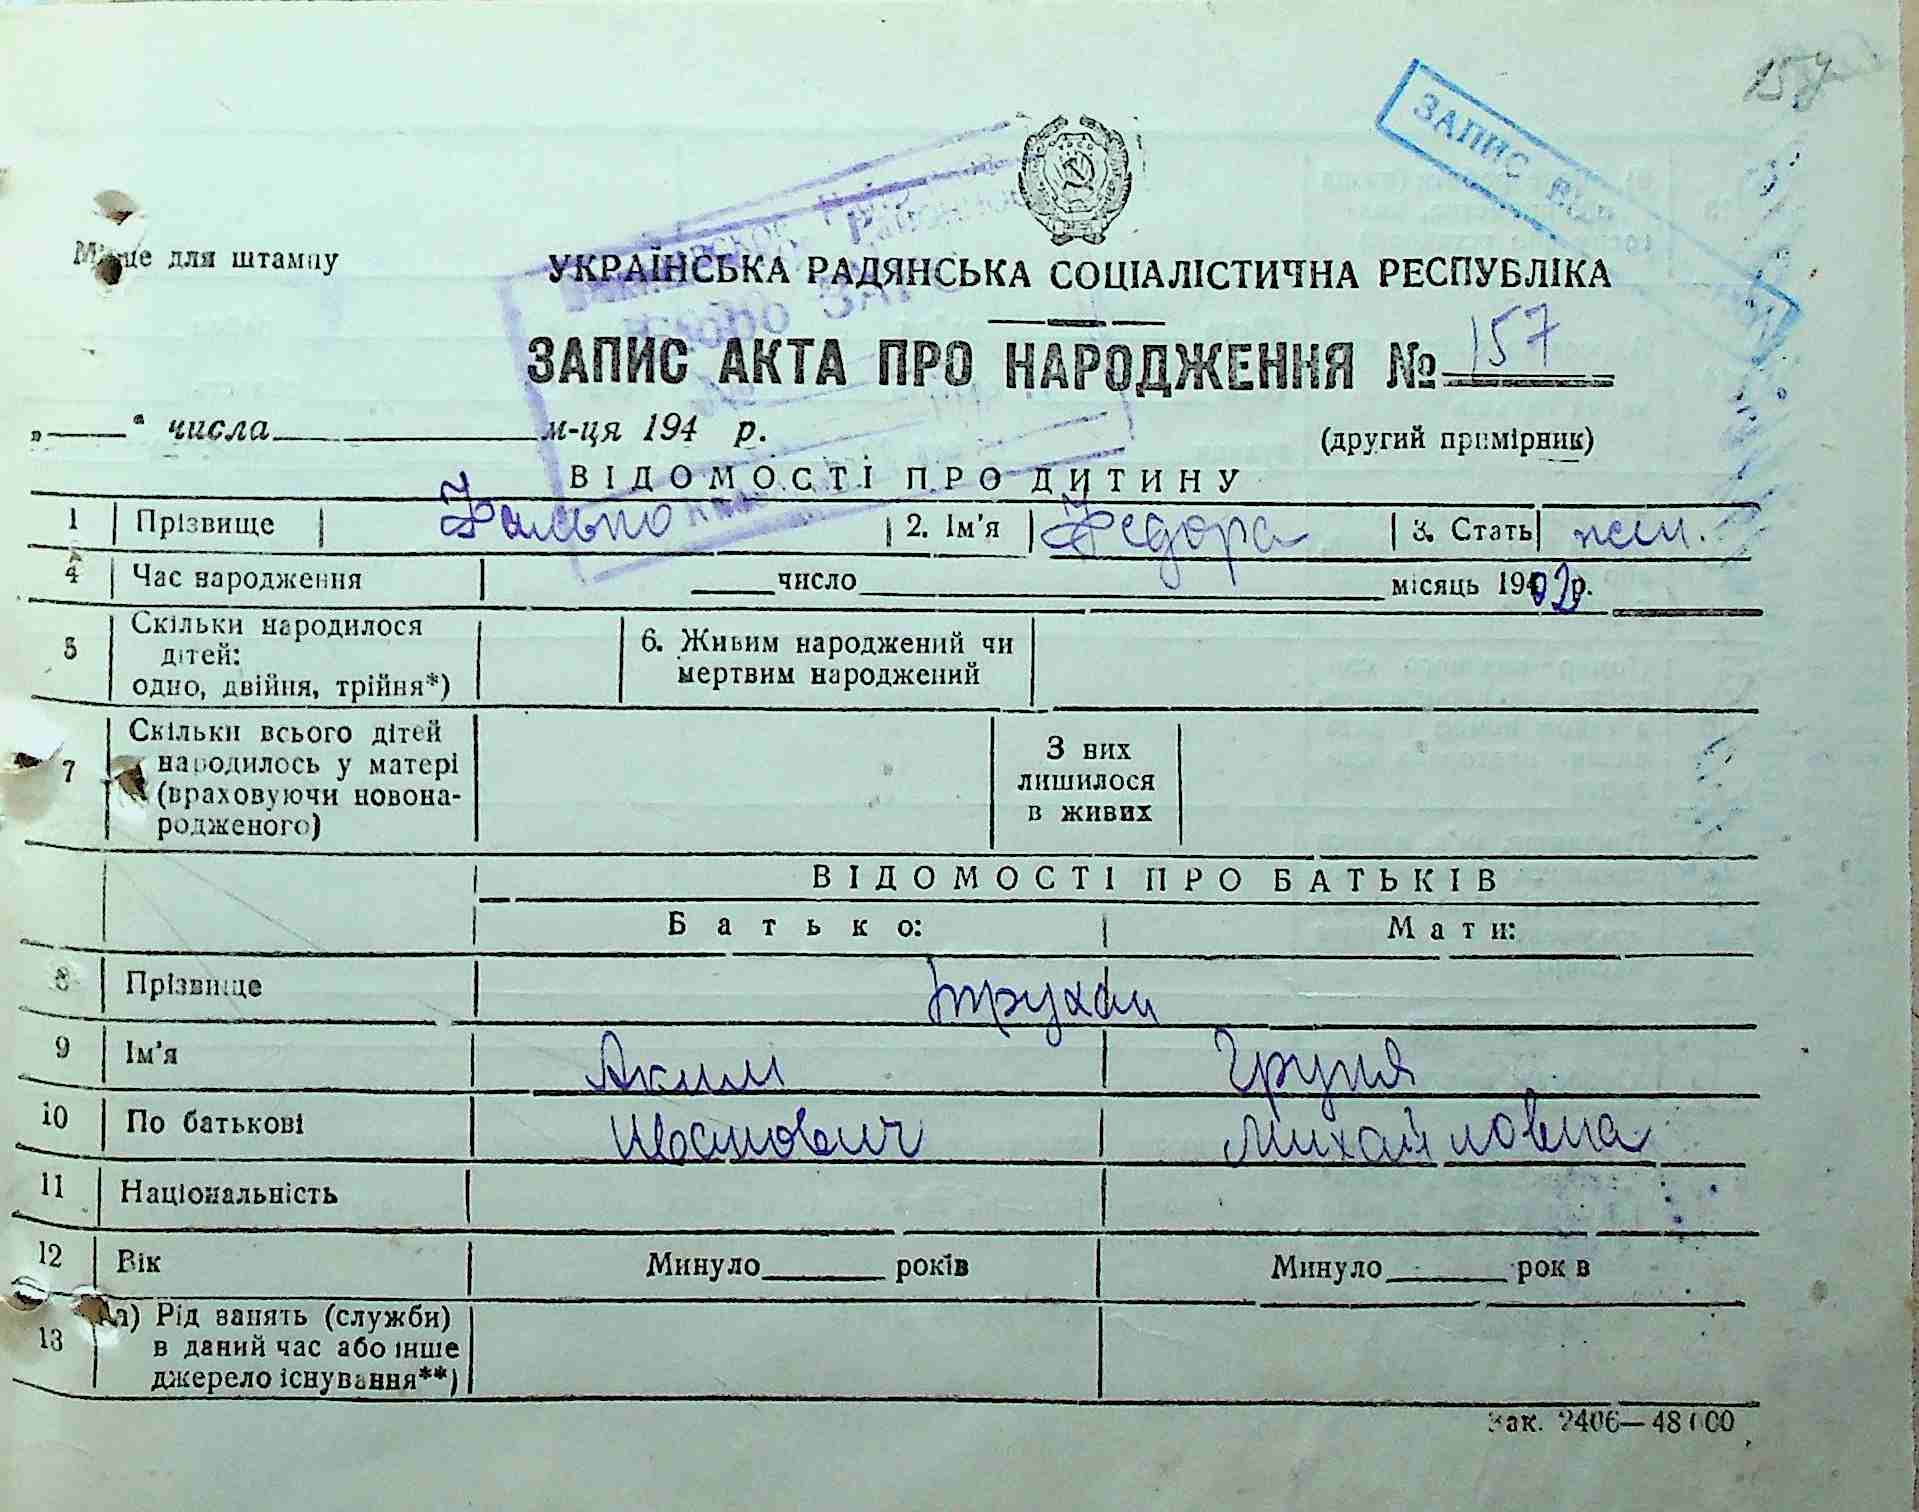 ЗАПИС
Місце для штампу
УКРАЇНСЬКА РАДЯНСЬКА СОЦІАЛІСТИЧНА РЕСПУБЛІКА
Бюро ЗАГС
ЗАПИС АКТА ПРО НАРОДЖЕННЯ № 157
„ “ числа м-ця 194 р.
(другий примірник)
ВІДОМОСТІ ПРО ДИТИНУ
1 Прізвище 2. Ім'я Федора 3. Стать жен.
4 Час народження число місяць 1902 р.
5 Скільки народилося
дітей:
одно, двійня, трійня*)
6. Живим народжений чи
мертвим народжений
7 Скільки всього дітей
народилось у матері
(враховуючи новона-
родженого)
З них
лишилося
в живих
ВІДОМОСТІ ПРО БАТЬКІВ
Батько: Мати:
8 Прізвище Трухан
9 Ім'я Аким Груня
10 По батькові Иванович Михайловна
11 Національність
12 Вік Минуло років Минуло рок в
13 а) Рід занять (служби)
в даний час або інше
джерело існування**)
Зак. 2406—48000